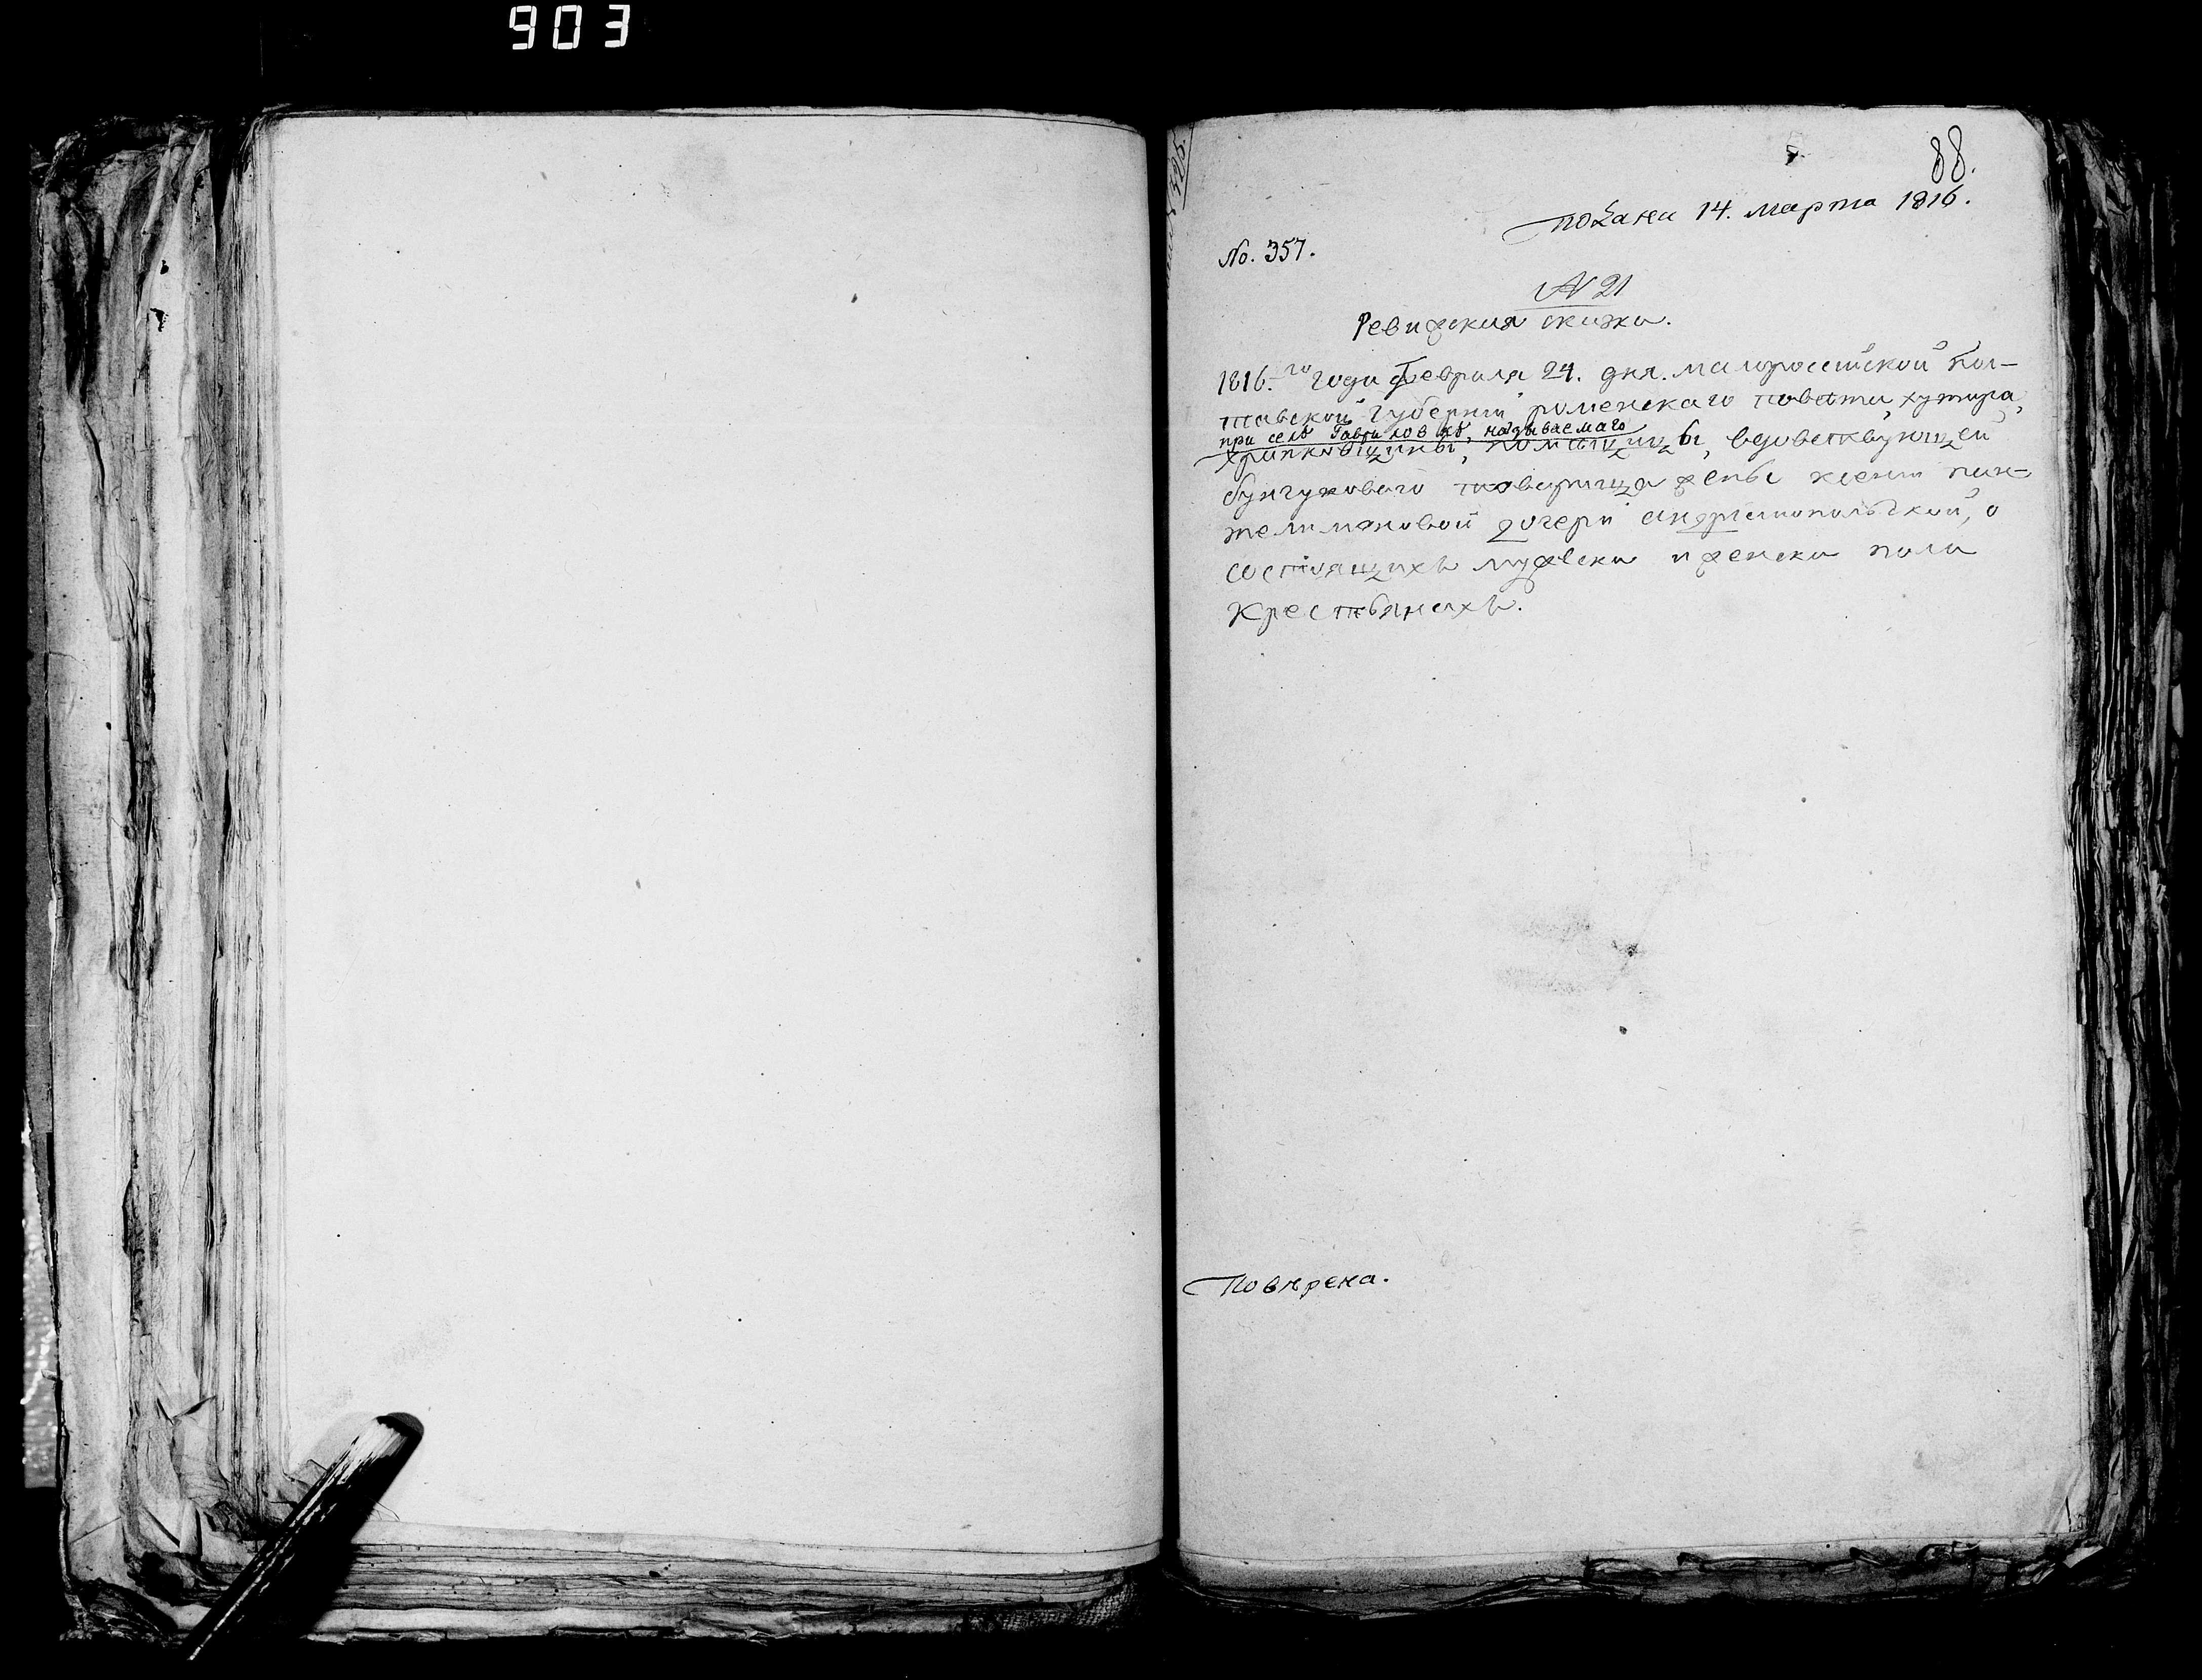 903
88.
подана 14. марта 1816.
No. 357.
N 21
Ревижская сказка.
1816.го года февраля 24. дня. малороссійской Пол-
тавской губерніи роменскаго повета, хутора,
при селѣ Гавриловкѣ, называемаго
хрипковщины, помѣщицы, вдовствующей
бунчуковаго товарища жены ксеніи пан-
телимоновой дочери андріяшопольской, о
состоящихъ мужеска и женска пола
крестьянахъ.
Повѣрена.